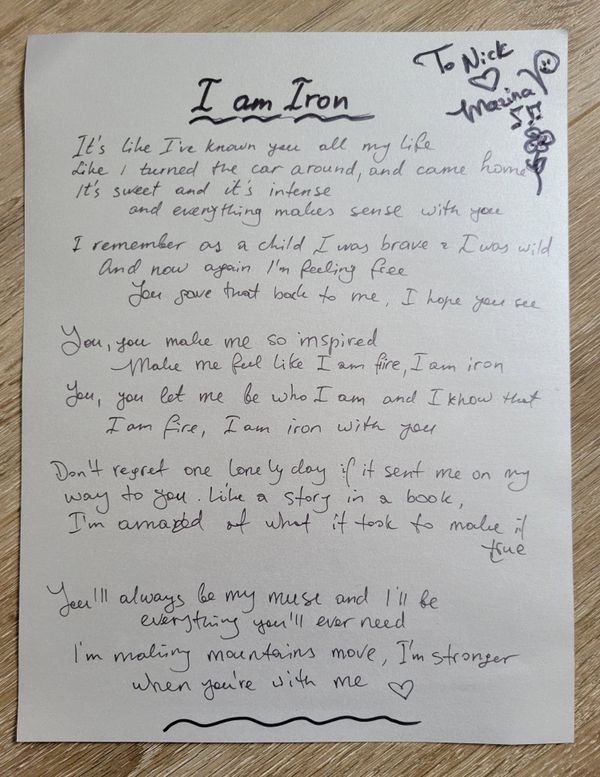 To Nick
Marina
I am Iron
It's like I've known you all my life
Like I turned the car around, and came home
It's sweet and it's intense
and everything makes sense with you
I remember as a child I was brave & I was wild
And now again I'm feeling free
You gave that back to me, I hope you see
You, you make me so inspired
Make me feel like I am fire, I am iron
You, you let me be who I am and I know that
I am fire, I am iron with you
Don't regret one lonely day if it sent me on my
way to you. Like a story in a book,
I'm amazed at what it took to make it
true
You'll always be my muse and I'll be
everything you'll ever need
I'm making mountains move, I'm stronger
when you're with me